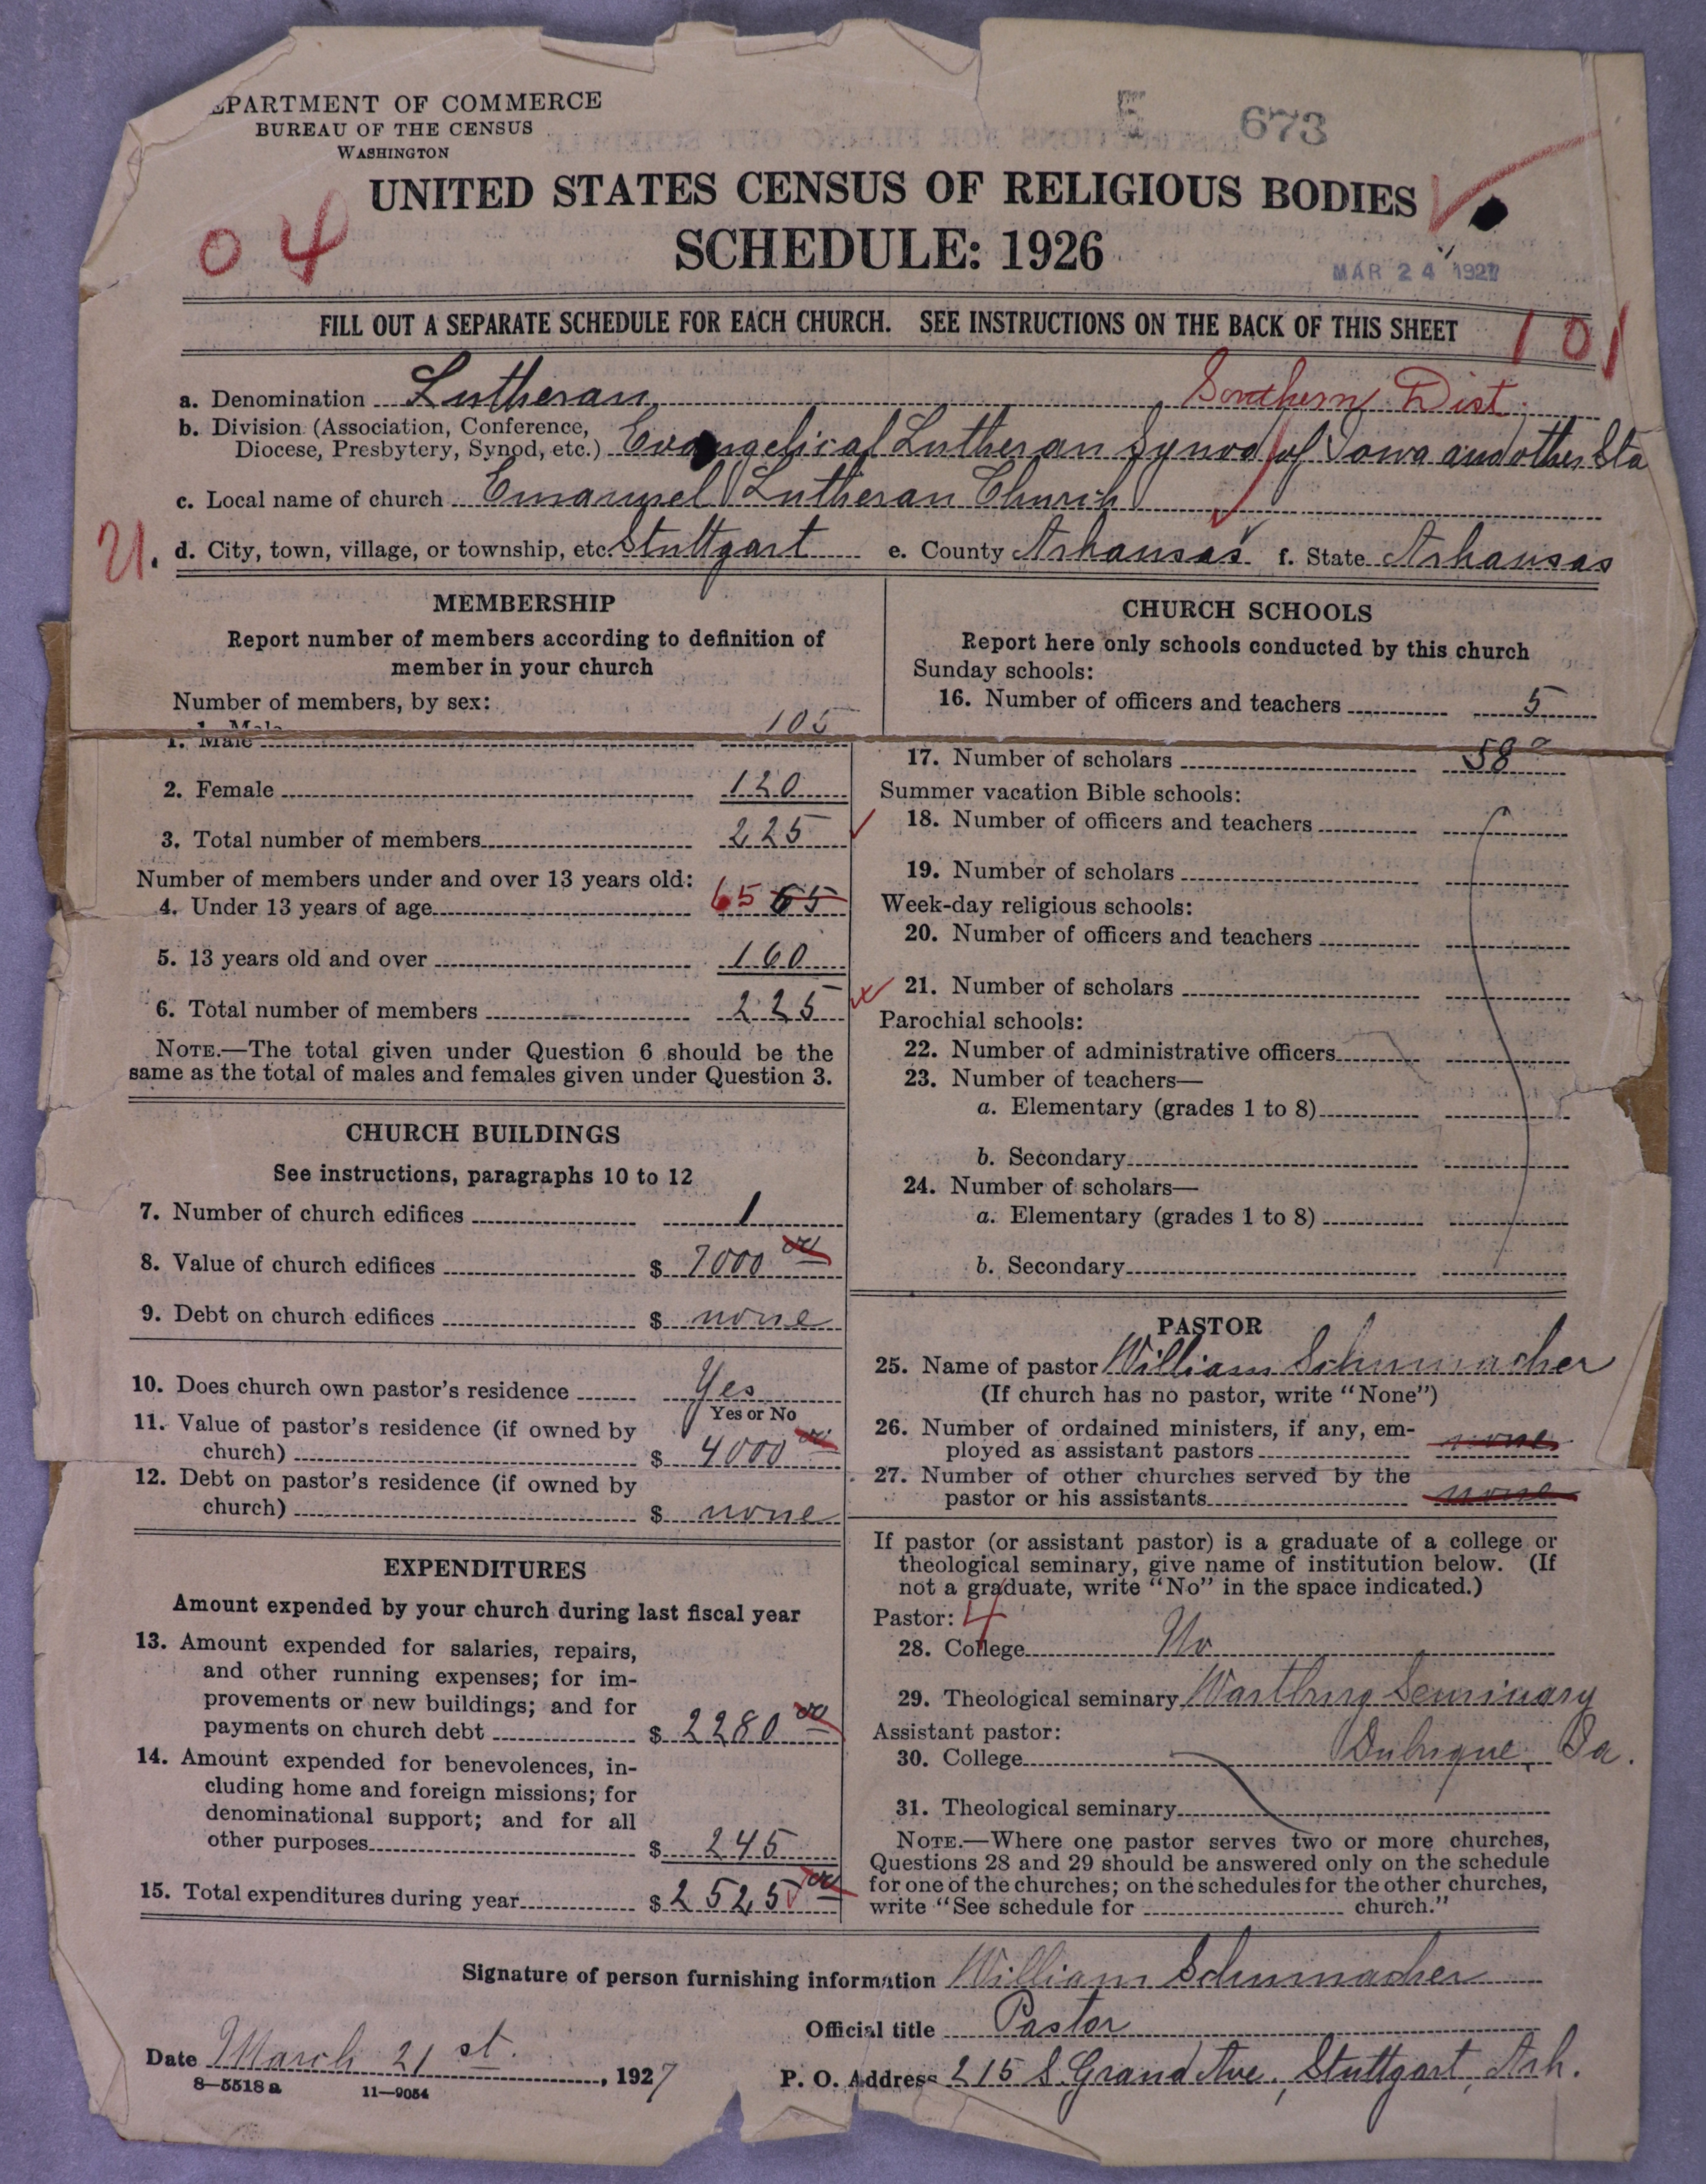 EPARTMENT OF COMMERCE
BUREAU OF THE CENSUS
WASHINGTON
E 673
UNITED STATES CENSUS OF RELIGIOUS BODIES
04
SCHEDULE: 1926
MAR 24 1927
FILL OUT A SEPARATE SCHEDULE FOR EACH CHURCH. SEE INSTRUCTIONS ON THE BACK OF THIS SHEET
101
a. Denomination Lutheran Southern Dist.
b. Division (Association, Conference,
Diocese, Presbytery, Synod, etc.) Evangelical Lutheran Synod of Iowa and other Sta
c. Local name of church Emanuel Lutheran Church
21.
d. City, town, village, or township, etc. Stuttgart e. County Arkansas f. State Arkansas
MEMBERSHIP
Report number of members according to definition of
member in your church
Number of members, by sex:
1. Male 105
2. Female 120
3. Total number of members 225
Number of members under and over 13 years old:
4. Under 13 years of age 65 65
5. 13 years old and over 160
6. Total number of members 225
NOTE.—The total given under Question 6 should be the
same as the total of males and females given under Question 3.
CHURCH BUILDINGS
See instructions, paragraphs 10 to 12
7. Number of church edifices 1
8. Value of church edifices $ 7000 00
9. Debt on church edifices $ none
10. Does church own pastor's residence Yes
Yes or No
11. Value of pastor's residence (if owned by
church) $ 4000 00
12. Debt on pastor's residence (if owned by
church) $ none
EXPENDITURES
Amount expended by your church during last fiscal year
13. Amount expended for salaries, repairs,
and other running expenses; for im-
provements or new buildings; and for
payments on church debt $ 2280 00
14. Amount expended for benevolences, in-
cluding home and foreign missions; for
denominational support; and for all
other purposes $ 245
15. Total expenditures during year $ 2525 00
CHURCH SCHOOLS
Report here only schools conducted by this church
Sunday schools:
16. Number of officers and teachers 5
17. Number of scholars 58
Summer vacation Bible schools:
18. Number of officers and teachers
19. Number of scholars
Week-day religious schools:
20. Number of officers and teachers
21. Number of scholars
Parochial schools:
22. Number of administrative officers
23. Number of teachers—
a. Elementary (grades 1 to 8)
b. Secondary
24. Number of scholars—
a. Elementary (grades 1 to 8)
b. Secondary
PASTOR
25. Name of pastor William Schumacher
(If church has no pastor, write "None")
26. Number of ordained ministers, if any, em-
ployed as assistant pastors none
27. Number of other churches served by the
pastor or his assistants none
If pastor (or assistant pastor) is a graduate of a college or
theological seminary, give name of institution below. (If
not a graduate, write "No" in the space indicated.)
Pastor: 4
28. College No
29. Theological seminary Wartburg Seminary
Assistant pastor:
30. College Dubuque, Ia.
31. Theological seminary
NOTE.—Where one pastor serves two or more churches,
Questions 28 and 29 should be answered only on the schedule
for one of the churches; on the schedules for the other churches,
write "See schedule for church."
Signature of person furnishing information William Schumacher
Official title Pastor
Date March 21st., 1927
P. O. Address 215 S. Grand Ave., Stuttgart, Ark.
8—5518 a 11—9054